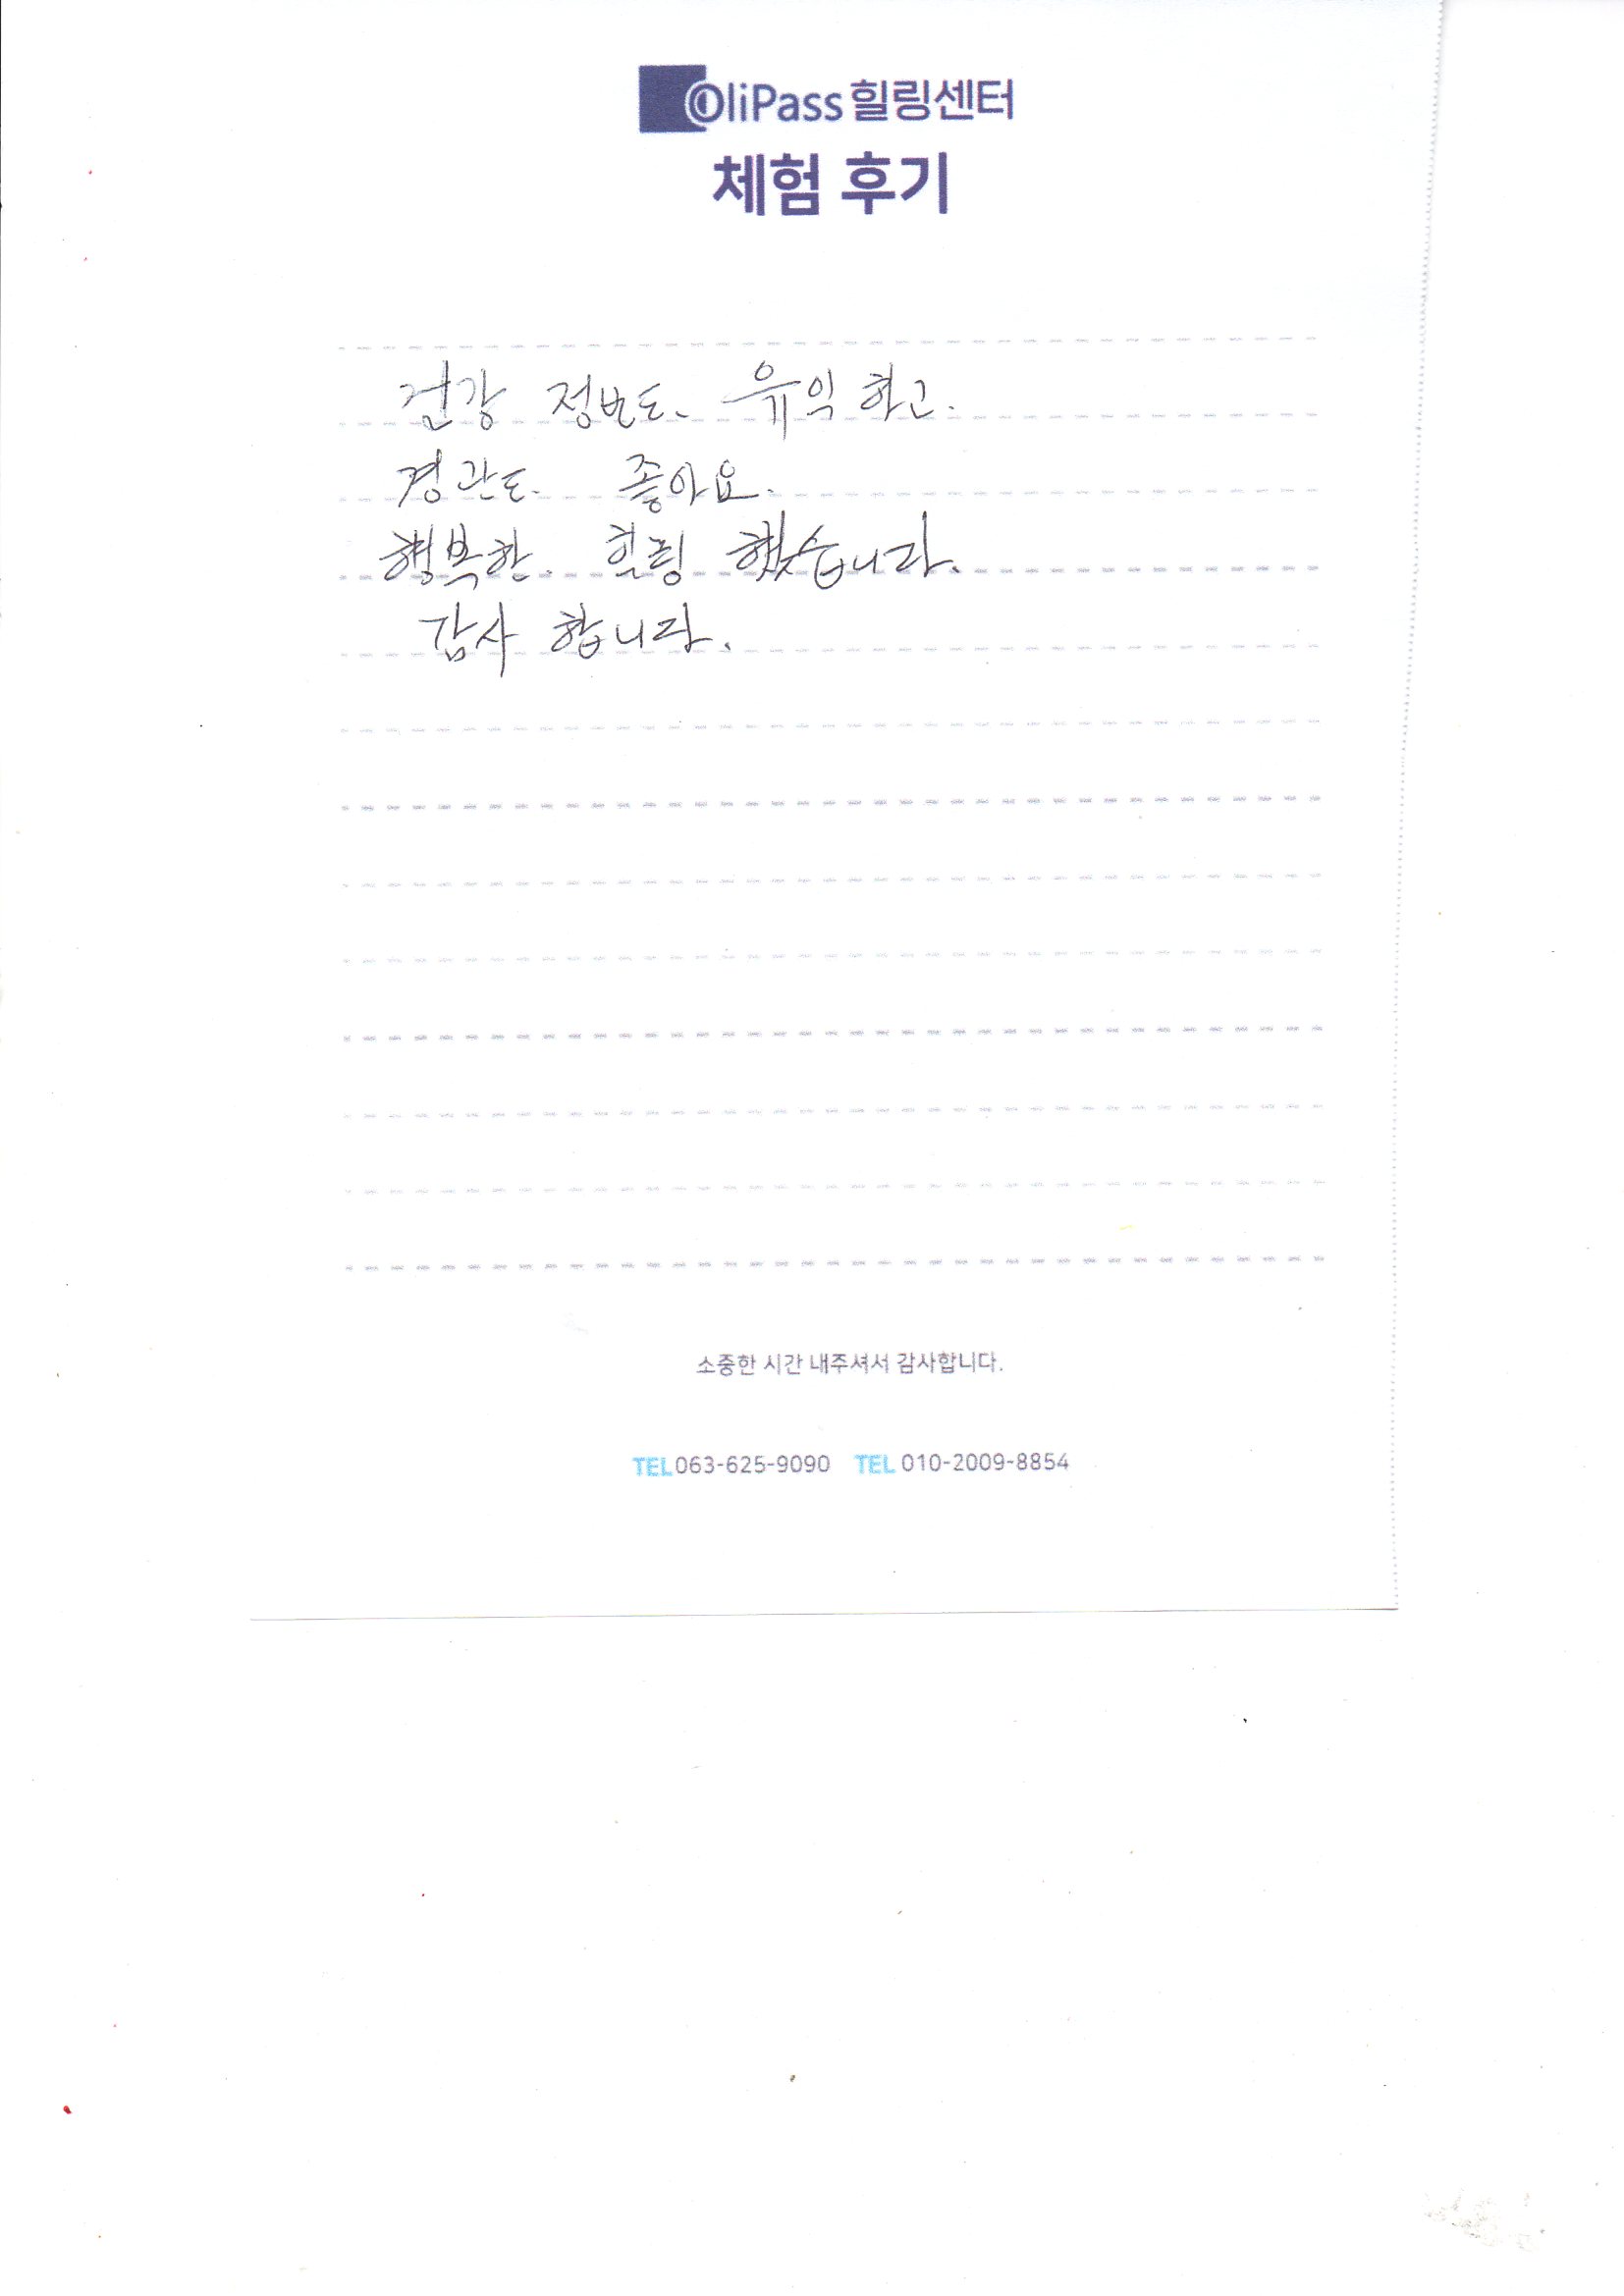 OliPass 힐링센터
체험 후기
건강 정보도. 유익 하고.
경관도. 좋아요.
행복한. 힐링 했습니다.
감사 합니다.
소중한 시간 내주셔서 감사합니다.
TEL 063-625-9090 TEL 010-2009-8854